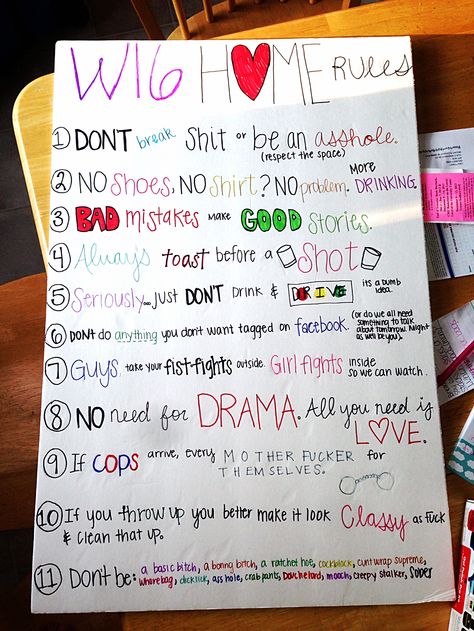 W16 HOME RULES
1 DON'T break Shit or be an asshole.
(respect the space)
2 NO Shoes, NO Shirt? NO problem. MORE DRINKING.
3 BAD mistakes make GOOD Stories.
4 Always toast before a Shot
5 Seriously... just DON'T Drink & DRIVE its a dumb idea.
6 DONT do anything you don't want tagged on facebook. (or do we all need something to talk about tomorrow. Might as well be you).
7 Guys, take your fist-fights outside. Girl fights inside so we can watch.
8 NO need for DRAMA. All you need is LOVE.
9 If COPS arrive, every MOTHER FUCKER for THEMSELVES.
10 If you throw up you better make it look Classy as fuck
& clean that up.
11 Don't be: a basic bitch, a boring bitch, a ratchet hoe, cockblock, cunt wrap supreme,
whorebag, clicklick, ass hole, crab pants, Douchelord, mooch, creepy stalker, sober